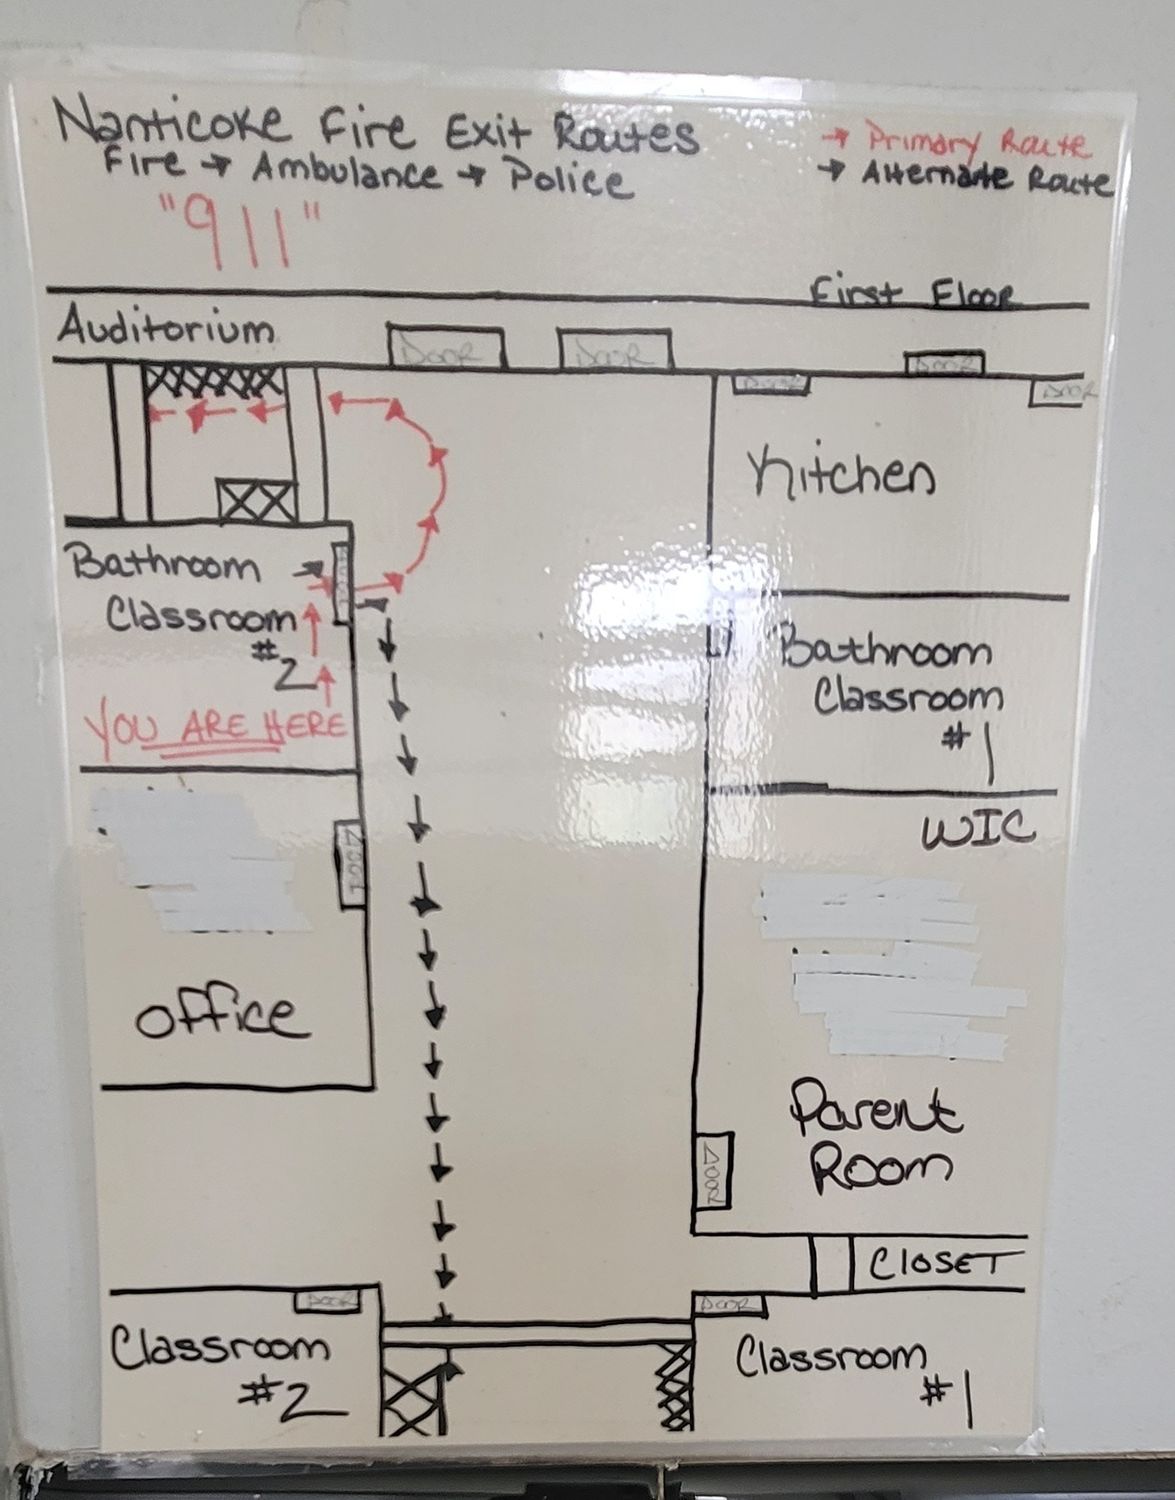 Nanticoke Fire Exit Routes
Fire → Ambulance → Police
"911"
→ Primary Route
→ Alternate Route
First Floor
Auditorium
DOOR
DOOR
DOOR
DOOR
DOOR
Kitchen
Bathroom
Classroom
#2
DOOR
YOU ARE HERE
Bathroom
Classroom
#1
WIC
DOOR
Office
Parent
Room
DOOR
CLOSET
DOOR
DOOR
Classroom
#2
Classroom
#1